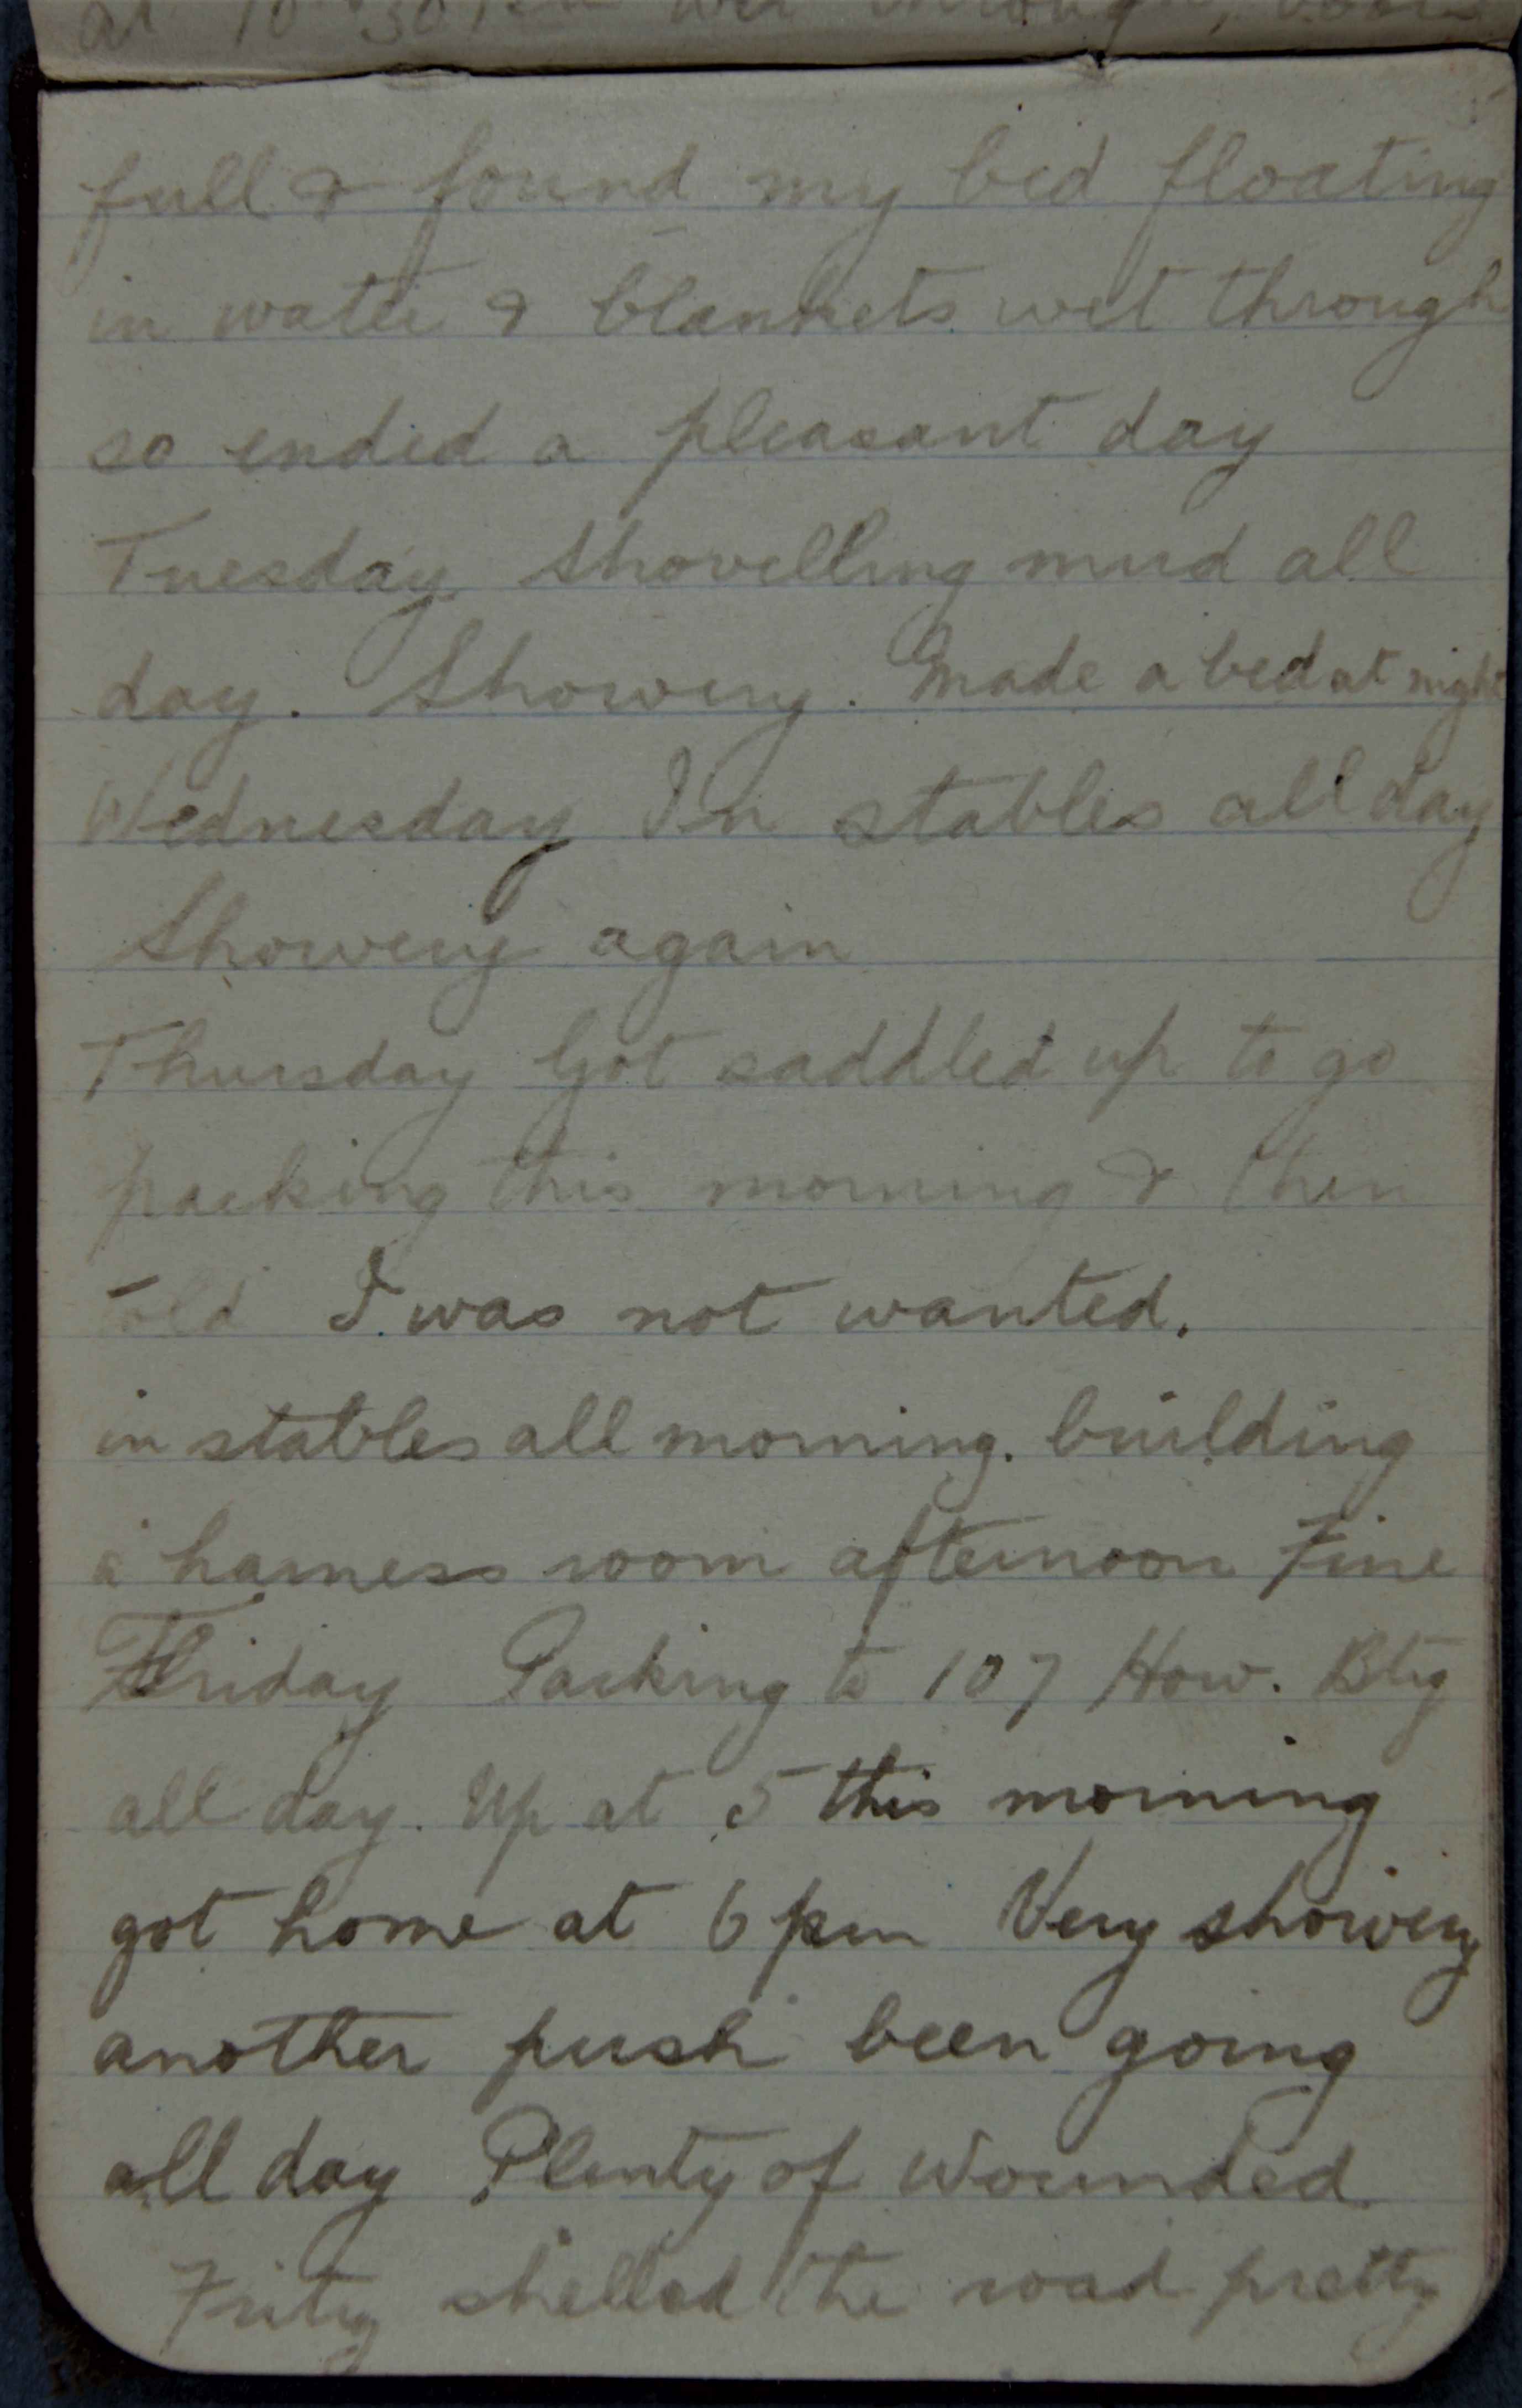 at 10.30
full & found my bed floating
in water & blankets wet through
so ended a pleasant day
Tuesday Shovelling mud all
day. Showery. Made a bed at night
Wednesday In stables all day
Showery again
Thursday Got saddled up to go
packing this morning & then
told I was not wanted.
in stables all morning. building
a harness room afternoon Fine
Friday Packing to 107 How. Bty
all day. Up at 5 this morning
got home at 6 pm Very showery
another push been going
all day Plenty of Wounded
Fritz shelled the road pretty